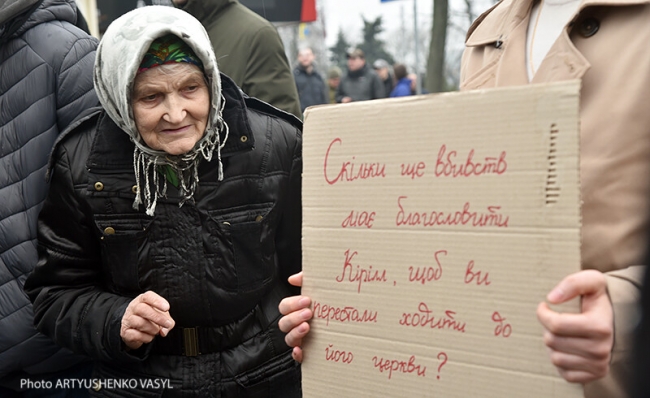 Скільки ще вбивств
має благословити
Кіріл, щоб ви
перестали ходити до
його церкви?
Photo ARTYUSHENKO VASYL